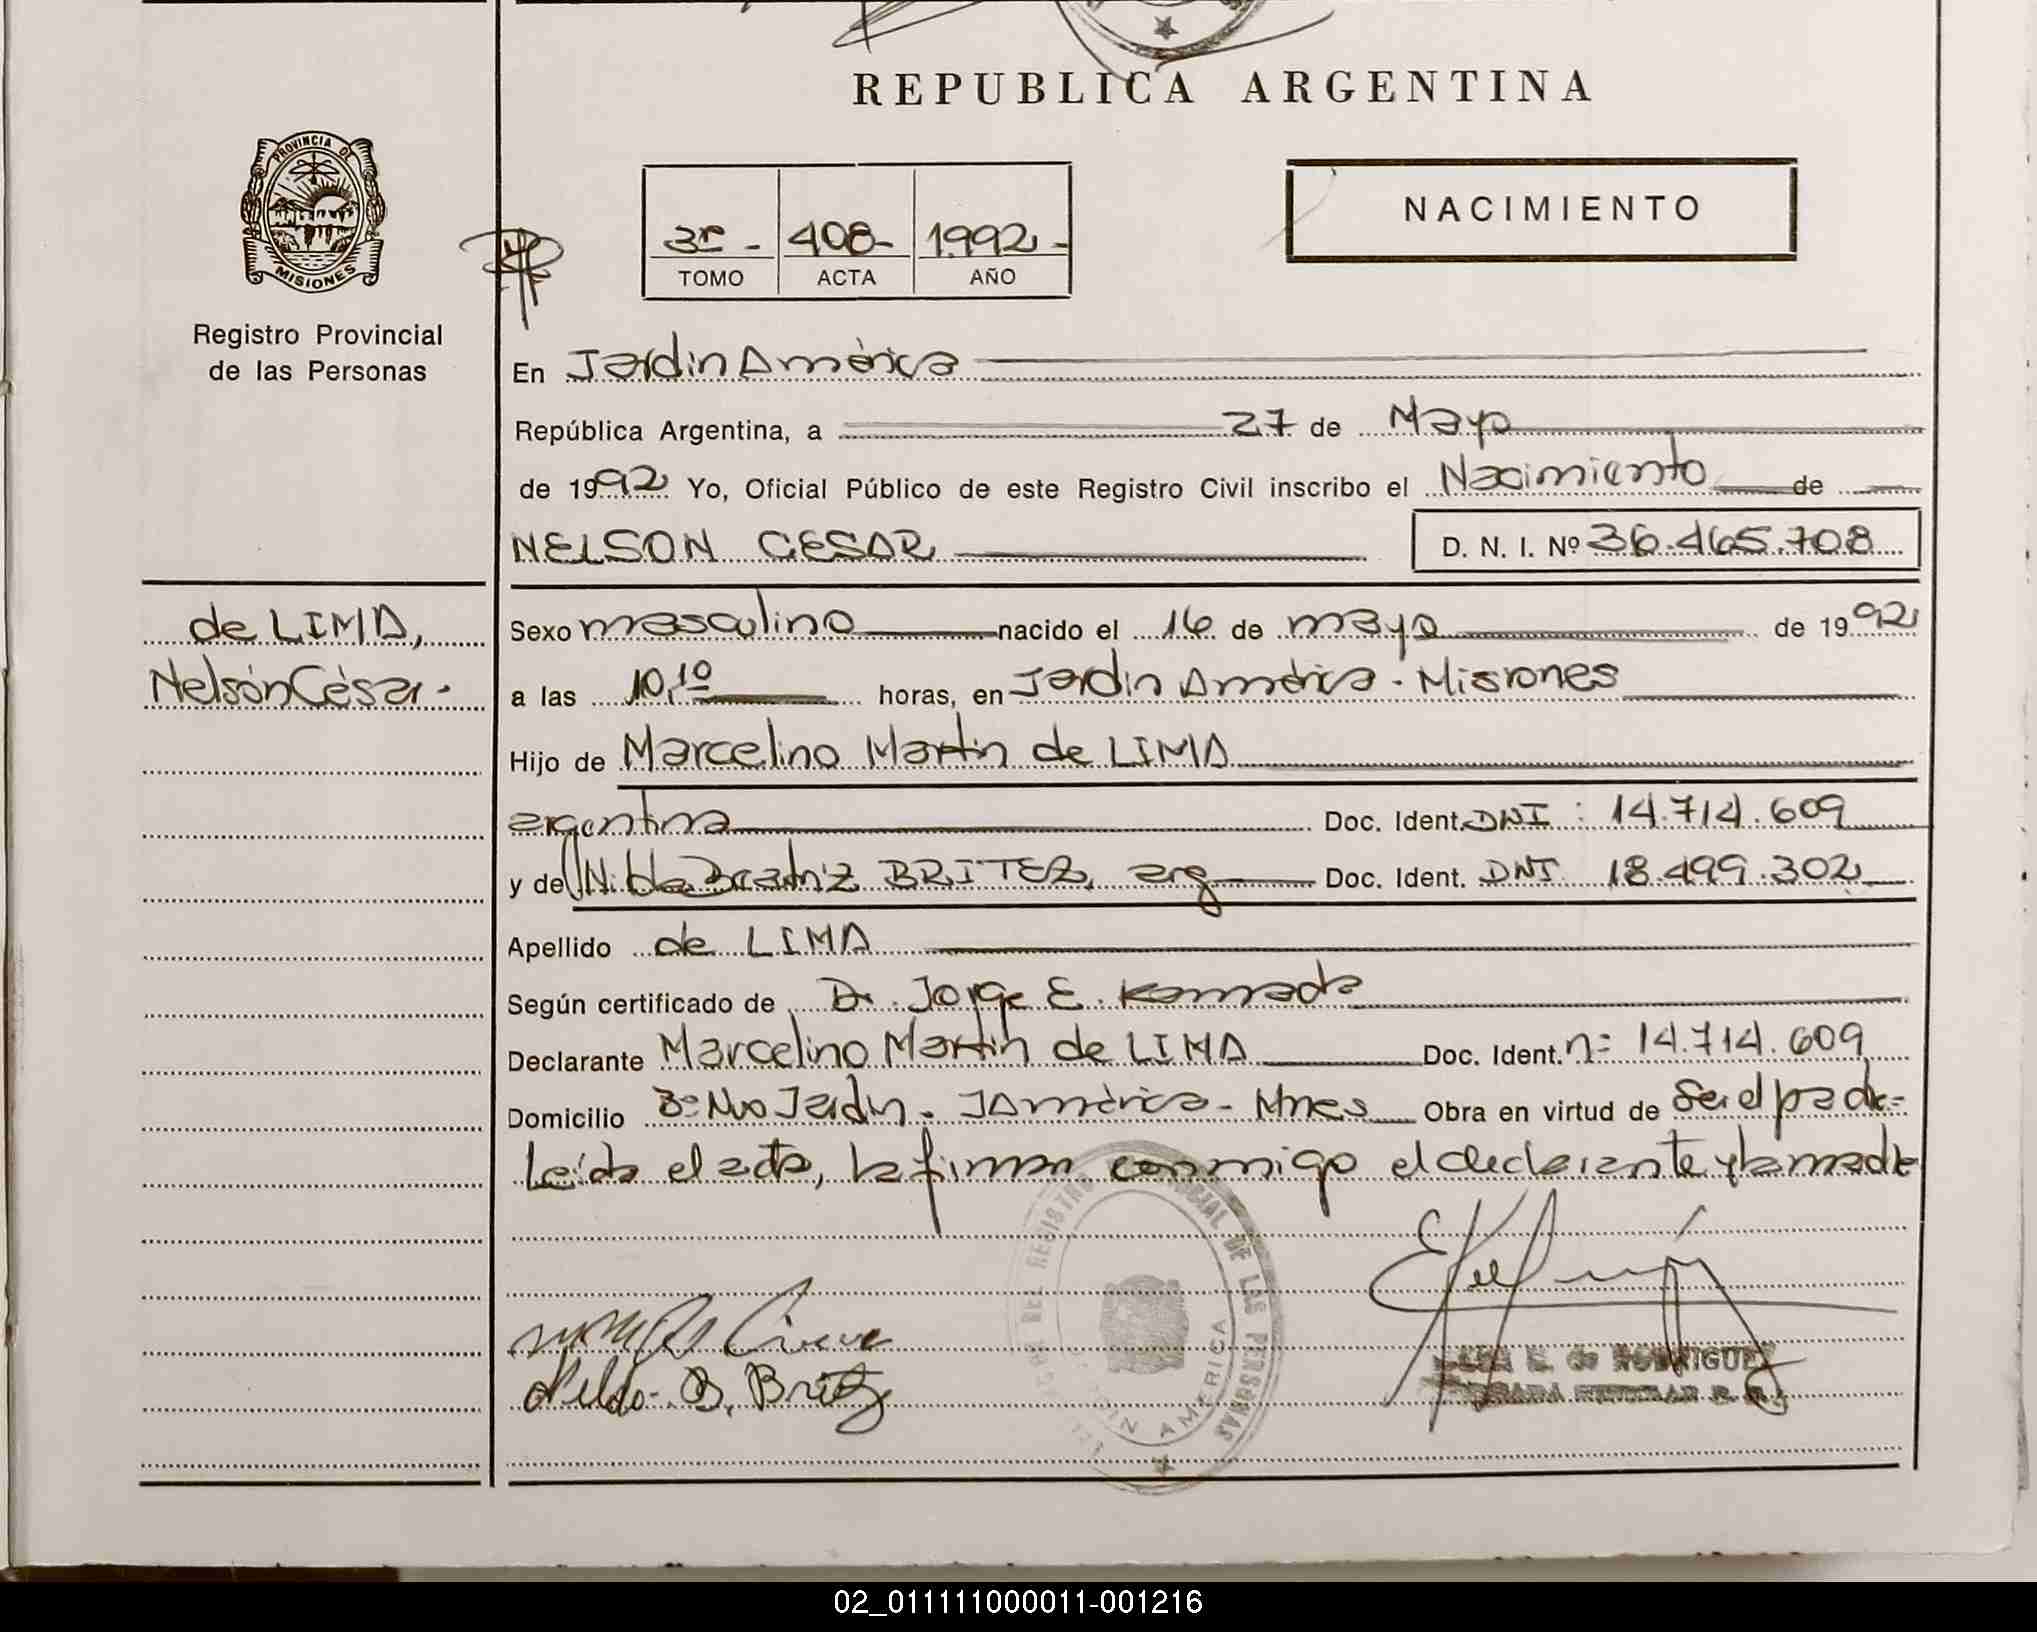 REPUBLICA ARGENTINA
PROVINCIA DE
MISIONES
Registro Provincial
de las Personas
3º - 408- 1992-
TOMO ACTA AÑO
NACIMIENTO
En Jardin América
República Argentina, a 27 de Mayo
de 1992 Yo, Oficial Público de este Registro Civil inscribo el Nacimiento de
NELSON CESAR D. N. I. Nº 36.465.708
de LIMA,
Nelsón César-
Sexo masculino nacido el 16 de mayo de 1992
a las 10,10 horas, en Jardin América - Misiones
Hijo de Marcelino Martin de LIMA
argentina Doc. Ident. DNI : 14.714.609
y de Nilda Beatriz BRITEZ, arg Doc. Ident. DNI 18.499.302
Apellido de LIMA
Según certificado de Dr. Jorge E. Kamada
Declarante Marcelino Martin de LIMA Doc. Ident. nº 14.714.609
Domicilio Bº Nvo Jardin. J América - Mnes Obra en virtud de Ser el padre-
Leída el acta, la firman conmigo el declarante y la madre
REGISTRO PROVINCIAL DE LAS PERSONAS
JARDIN AMERICA
E. de RODRIGUEZ
B. Britez
02_011111000011-001216